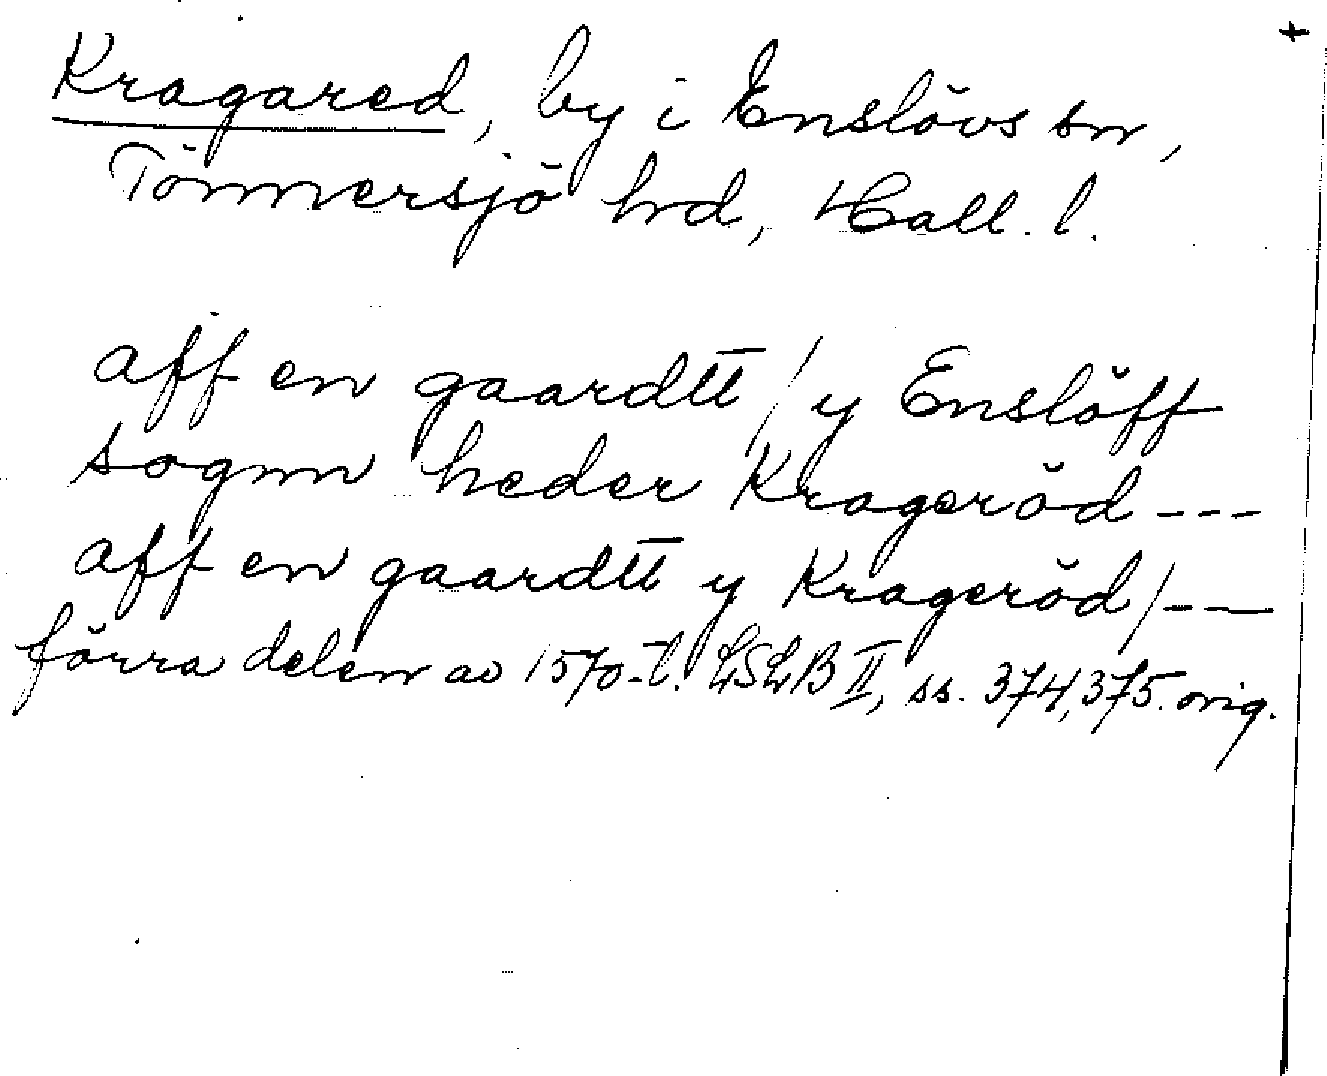 +
Kragared, by i Enslövs sn,
Tönnersjö hrd, Hall. l.
aff en gaardtt / y Enslöff
sognn heder Krageröd ---
aff en gaardtt y Krageröd / ---
förra delen av 1570-t. LSLB II, ss. 374, 375. orig.